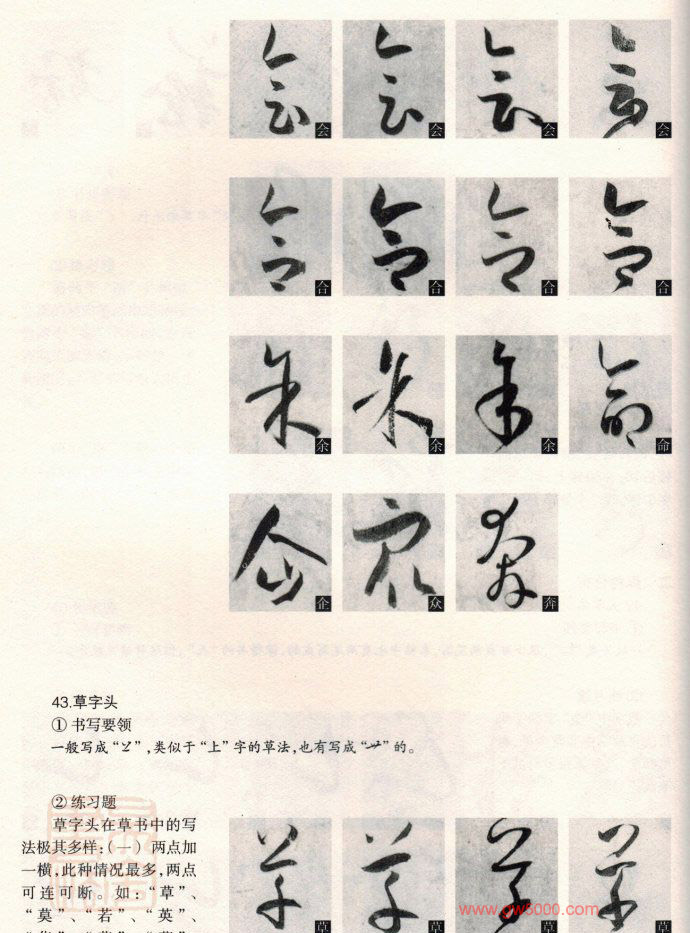 会 会 会 会
合 合 合 合
余 余 余 命
企 众 奔
43.草字头
① 书写要领
一般写成“”,类似于“上”字的草法,也有写成“”的。
② 练习题
草字头在草书中的写
法极其多样:(一)两点加
一横,此种情况最多,两点
可连可断。如:“草”、
“莫”、“若”、“英”、
草 草 草 草
www.gw5000.com